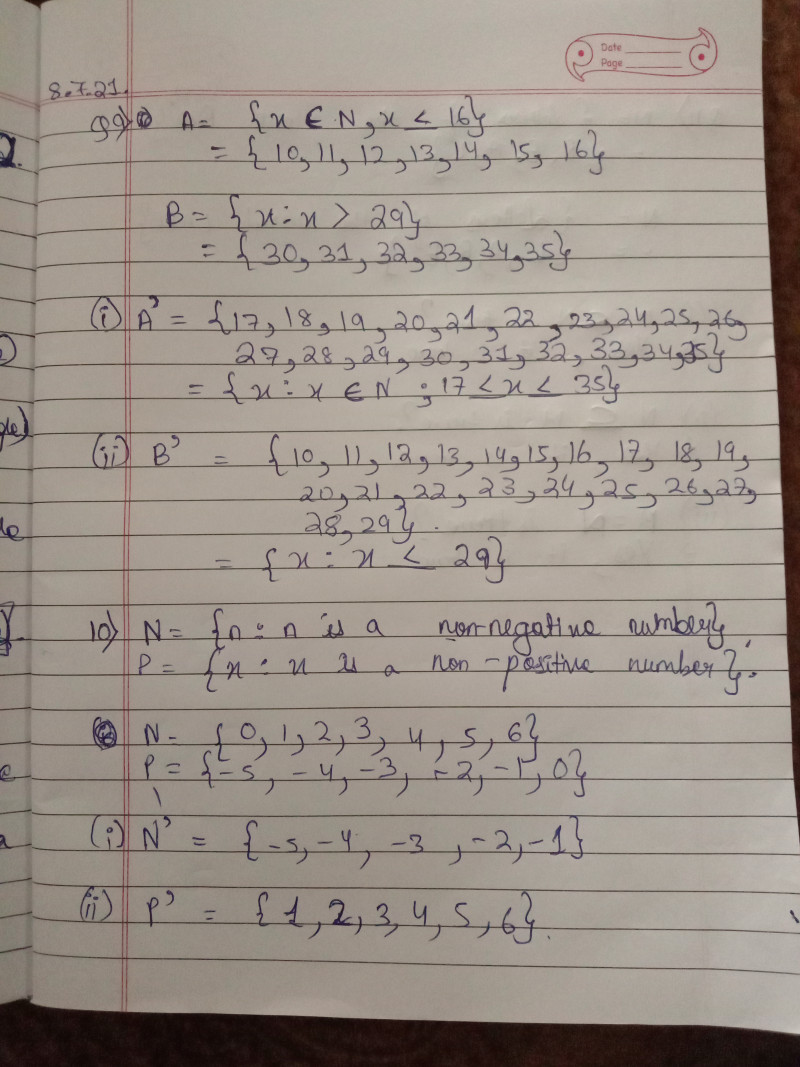 Date
Page
8.7.21.
Q9) A = {x ∈ N, x ≤ 16}
= {10, 11, 12, 13, 14, 15, 16}
B = {x : x > 29}
= {30, 31, 32, 33, 34, 35}
(i) A' = {17, 18, 19, 20, 21, 22, 23, 24, 25, 26,
27, 28, 29, 30, 31, 32, 33, 34, 35}
= {x : x ∈ N ; 17 ≤ x ≤ 35}
(ii) B' = {10, 11, 12, 13, 14, 15, 16, 17, 18, 19,
20, 21, 22, 23, 24, 25, 26, 27,
28, 29}.
= {x : x ≤ 29}
10) N = {n : n is a non-negative number};
P = {x : x is a non-positive number}.
N = {0, 1, 2, 3, 4, 5, 6}
P = {-5, -4, -3, -2, -1, 0}
(i) N' = {-5, -4, -3, -2, -1}
(ii) P' = {1, 2, 3, 4, 5, 6}.